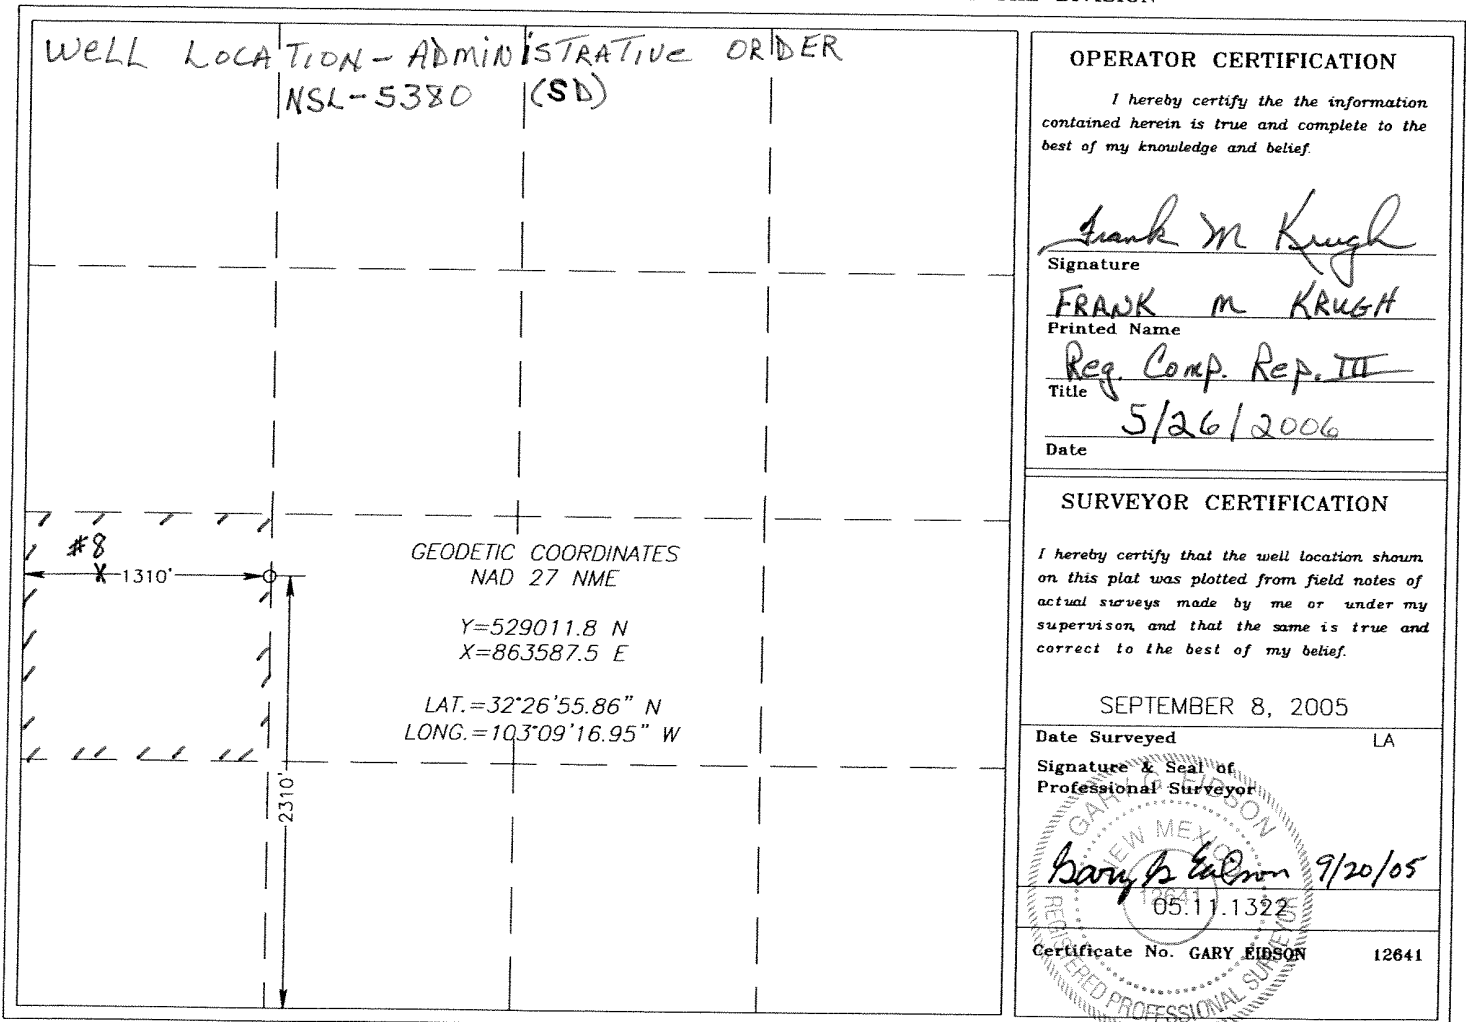 WELL LOCATION - ADMINISTRATIVE ORDER
NSL-5380 (SD)
#8
X 1310'
2310'
GEODETIC COORDINATES
NAD 27 NME
Y=529011.8 N
X=863587.5 E
LAT.=32°26'55.86" N
LONG.=103°09'16.95" W
OPERATOR CERTIFICATION
I hereby certify the the information
contained herein is true and complete to the
best of my knowledge and belief.
Frank M Krugh
Signature
FRANK M KRUGH
Printed Name
Reg. Comp. Rep. III
Title
5/26/2006
Date
SURVEYOR CERTIFICATION
I hereby certify that the well location shown
on this plat was plotted from field notes of
actual surveys made by me or under my
supervison, and that the same is true and
correct to the best of my belief.
SEPTEMBER 8, 2005
Date Surveyed LA
Signature & Seal of
Professional Surveyor
GARY G. EIDSON
NEW MEXICO
12641
REGISTERED PROFESSIONAL SURVEYOR
Gary G Eidson 9/20/05
05.11.1322
Certificate No. GARY EIDSON 12641